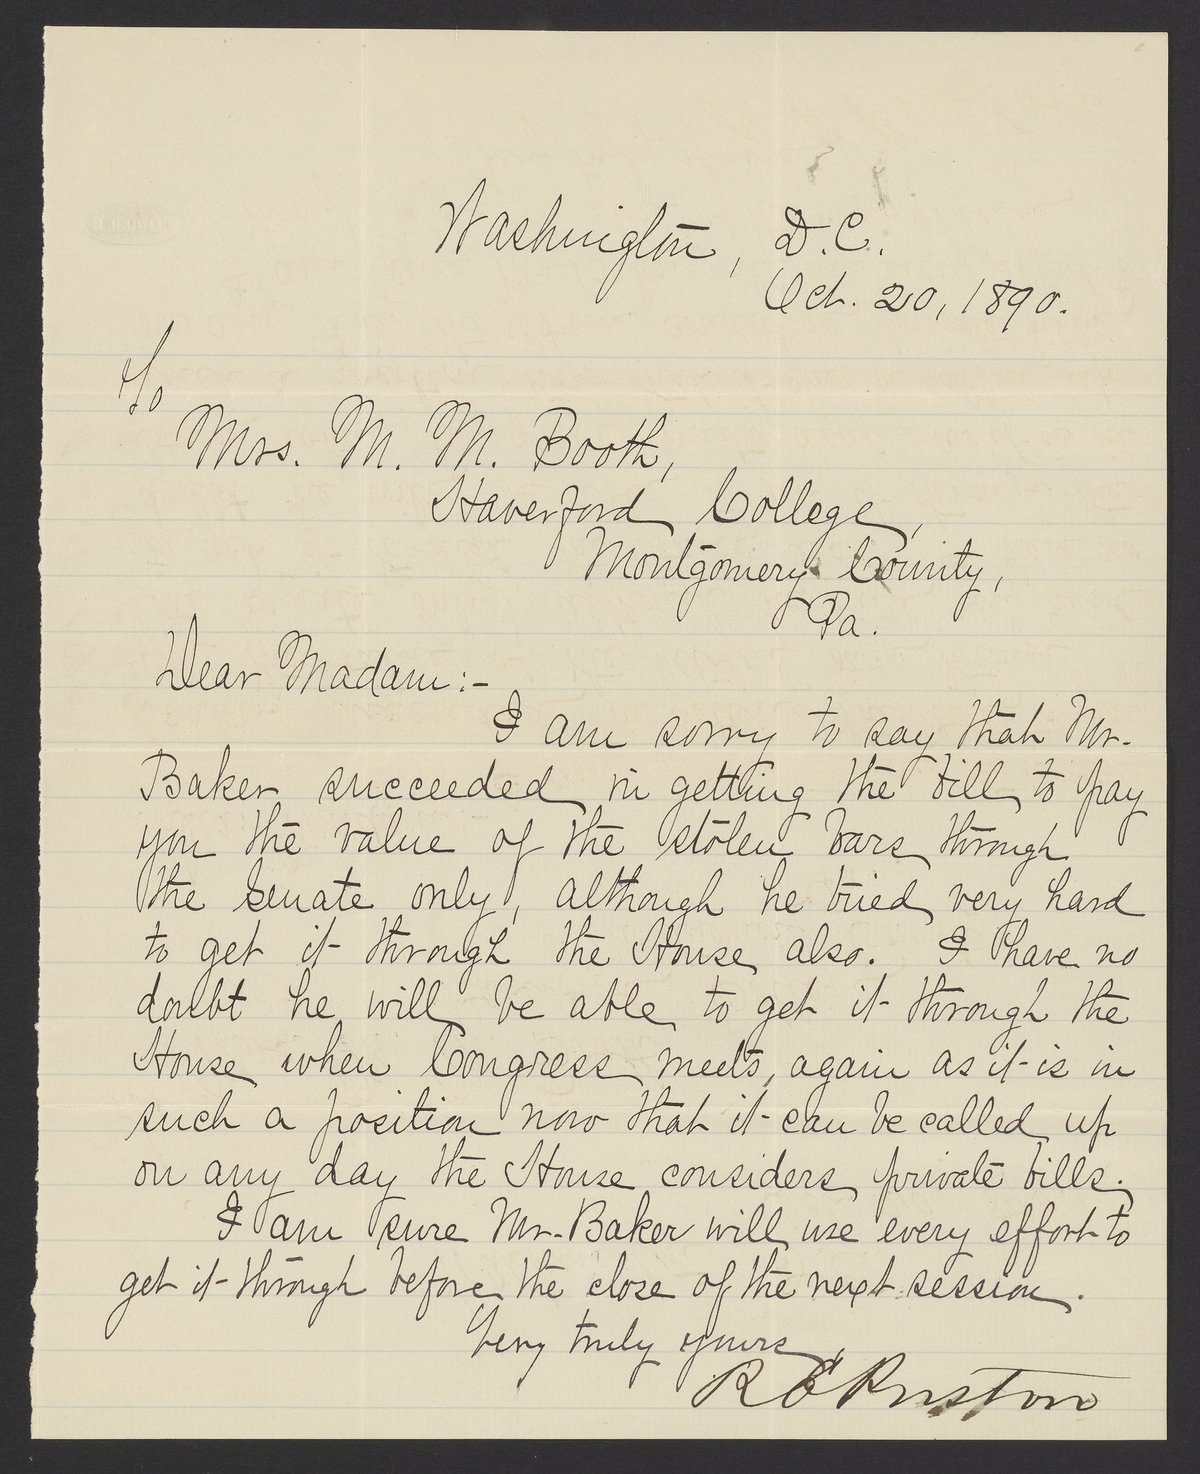 Washington, D.C.
Oct. 20, 1890.
To
Mrs. M. M. Booth,
Haverford College,
Montgomery County,
Pa.
Dear Madam:-
I am sorry to say that Mr.
Baker succeeded in getting the bill to pay
you the value of the stolen bars through
the Senate only, although he tried very hard
to get it through the House also. I have no
doubt he will be able to get it through the
House when Congress meets, again as it is in
such a position now that it can be called up
on any day the House considers private bills.
I am sure Mr. Baker will use every effort to
get it through before the close of the next session.
Very truly yours,
R